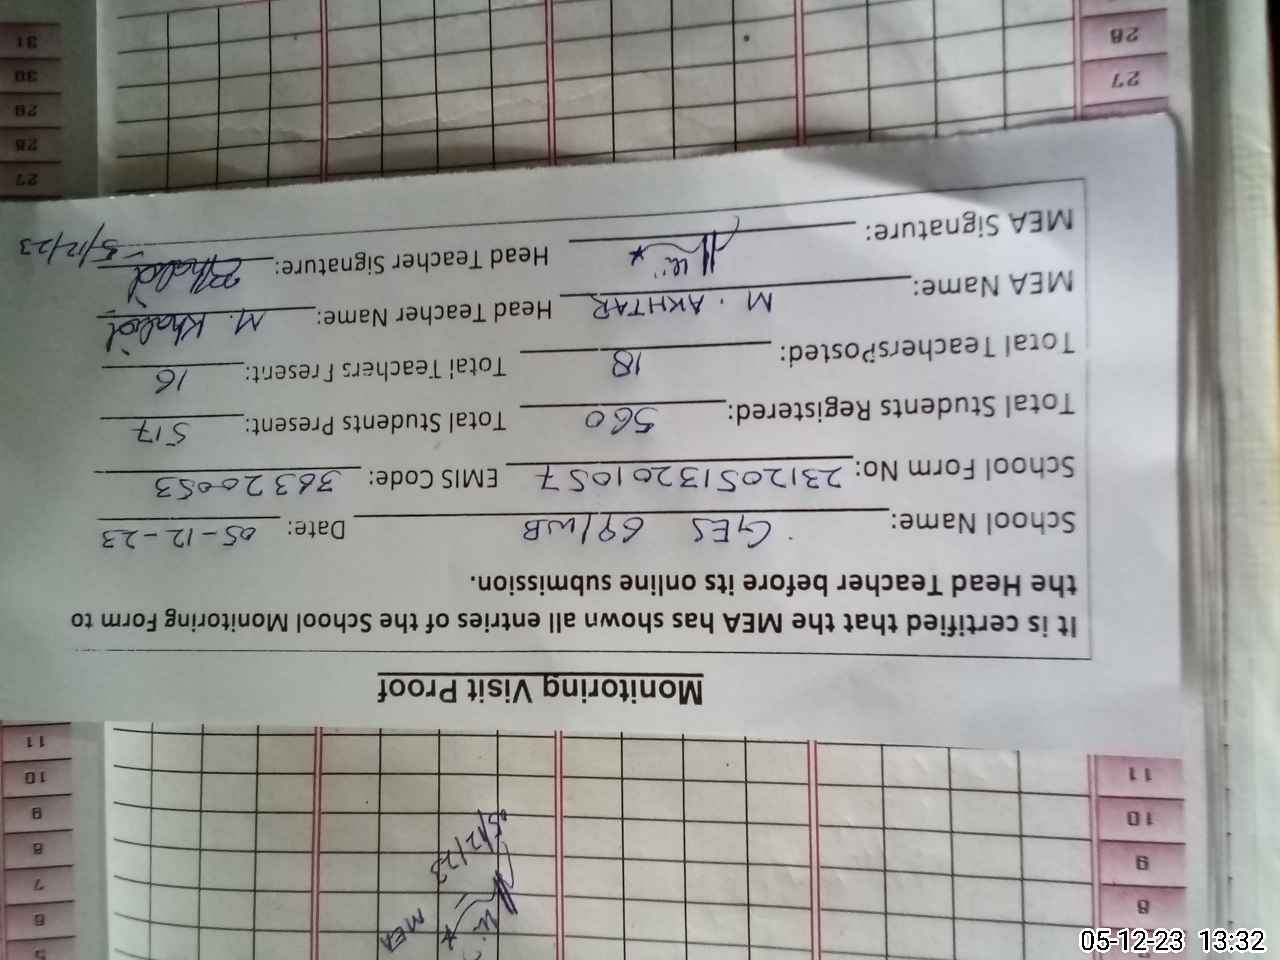 MEA
5/12/23
5
6
7
8 8
9 9
10 10
11 11
Monitoring Visit Proof
It is certified that the MEA has shown all entries of the School Monitoring Form to
the Head Teacher before its online submission.
School Name: GES 69/WB Date: 05-12-23
School Form No: 23120513201057 EMIS Code: 36320053
Total Students Registered: 560 Total Students Present: 517
Total TeachersPosted: 18 Total Teachers Present: 16
MEA Name: M. AKHTAR Head Teacher Name: M. Khalid
MEA Signature: Head Teacher Signature: Khalid
5/12/23
27 27
28 28
29
30
31
05-12-23 13:32